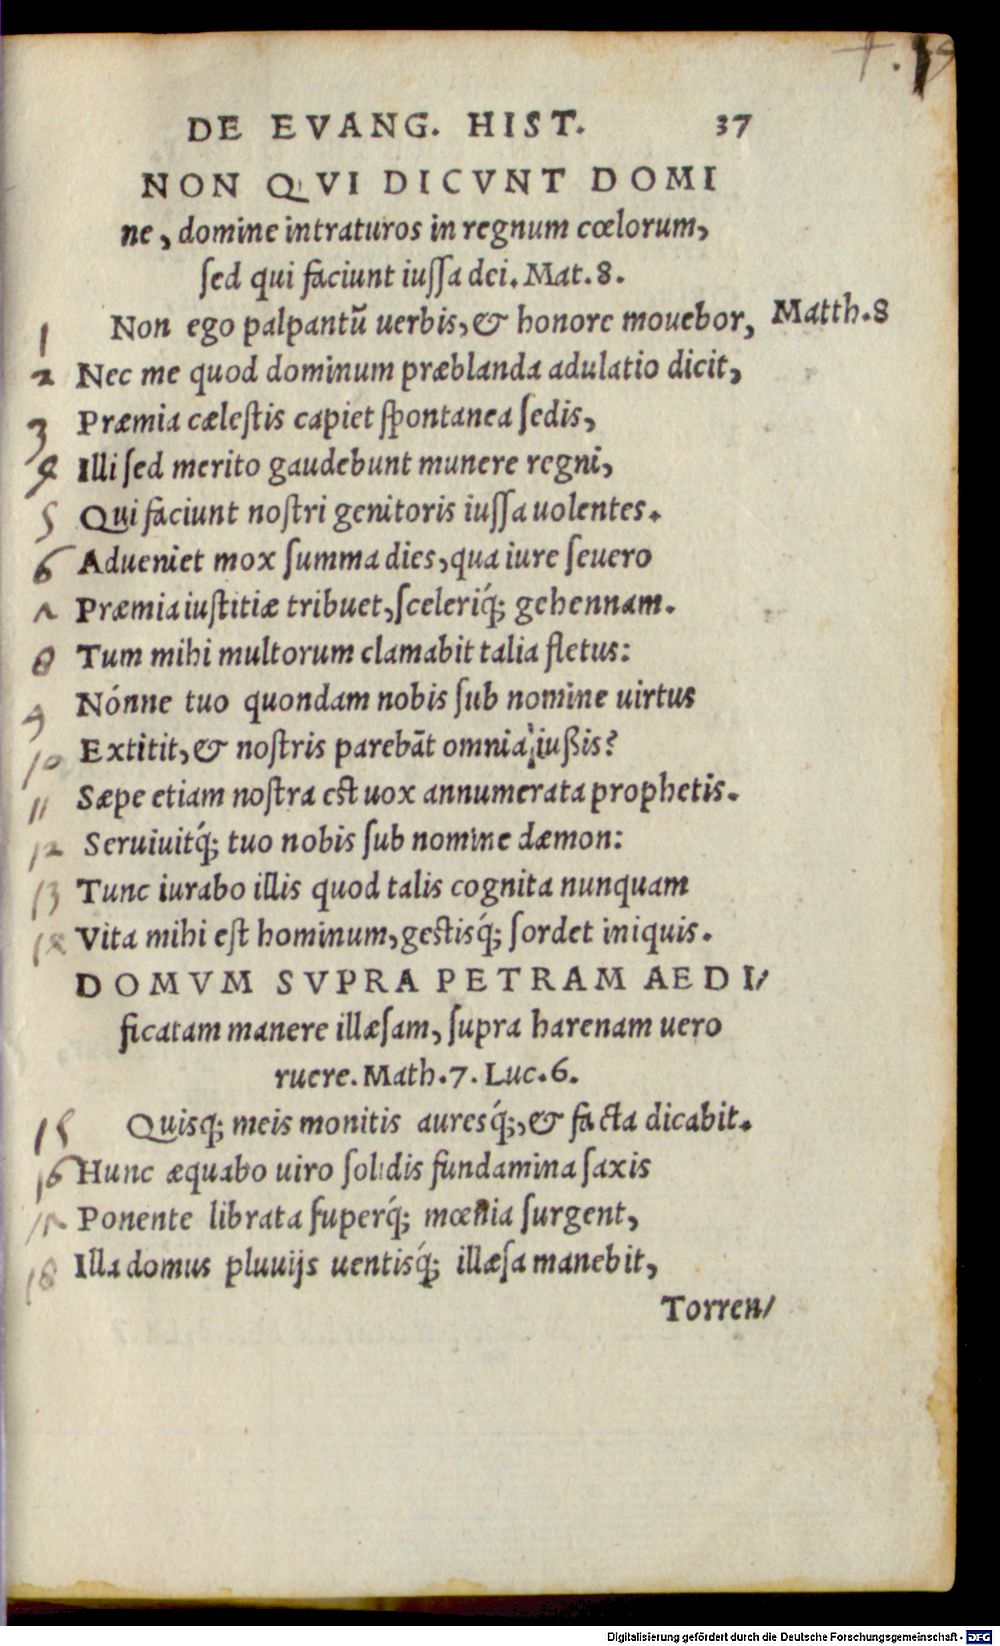 DE EVANG. HIST. 37
NON QVI DICVNT DOMI
ne, domine intraturos in regnum cœlorum,
ſed qui faciunt iuſſa dei. Mat. 8.
1 Non ego palpantū uerbis, & honore mouebor, Matth. 8
2 Nec me quod dominum præblanda adulatio dicit,
3 Præmia cæleſtis capiet ſpontanea ſedis,
4 Illi ſed merito gaudebunt munere regni,
5 Qui faciunt noſtri genitoris iuſſa uolentes.
6 Adueniet mox ſumma dies, qua iure ſeuero
7 Præmia iuſtitiæ tribuet, ſceleriq́; gehennam.
8 Tum mihi multorum clamabit talia fletus:
9 Nónne tuo quondam nobis ſub nomine uirtus
10 Extitit, & noſtris parebāt omnia iußis?
11 Sæpe etiam noſtra est uox annumerata prophetis.
12 Seruiuitq́; tuo nobis ſub nomine dæmon:
13 Tunc iurabo illis quod talis cognita nunquam
14 Vita mihi eſt hominum, gestisq́; ſordet iniquis.
DOMVM SVPRA PETRAM AEDI/
ficatam manere illæſam, ſupra harenam uero
ruere. Math. 7. Luc. 6.
15 Quisq; meis monitis auresq́;, & facta dicabit.
16 Hunc æquabo uiro ſolidis fundamina ſaxis
17 Ponente librata ſuperq́; mœnia ſurgent,
18 Illa domus pluuijs uentisq́; illæſa manebit,
Torren/
Digitalisierung gefördert durch die Deutsche Forschungsgemeinschaft - DFG